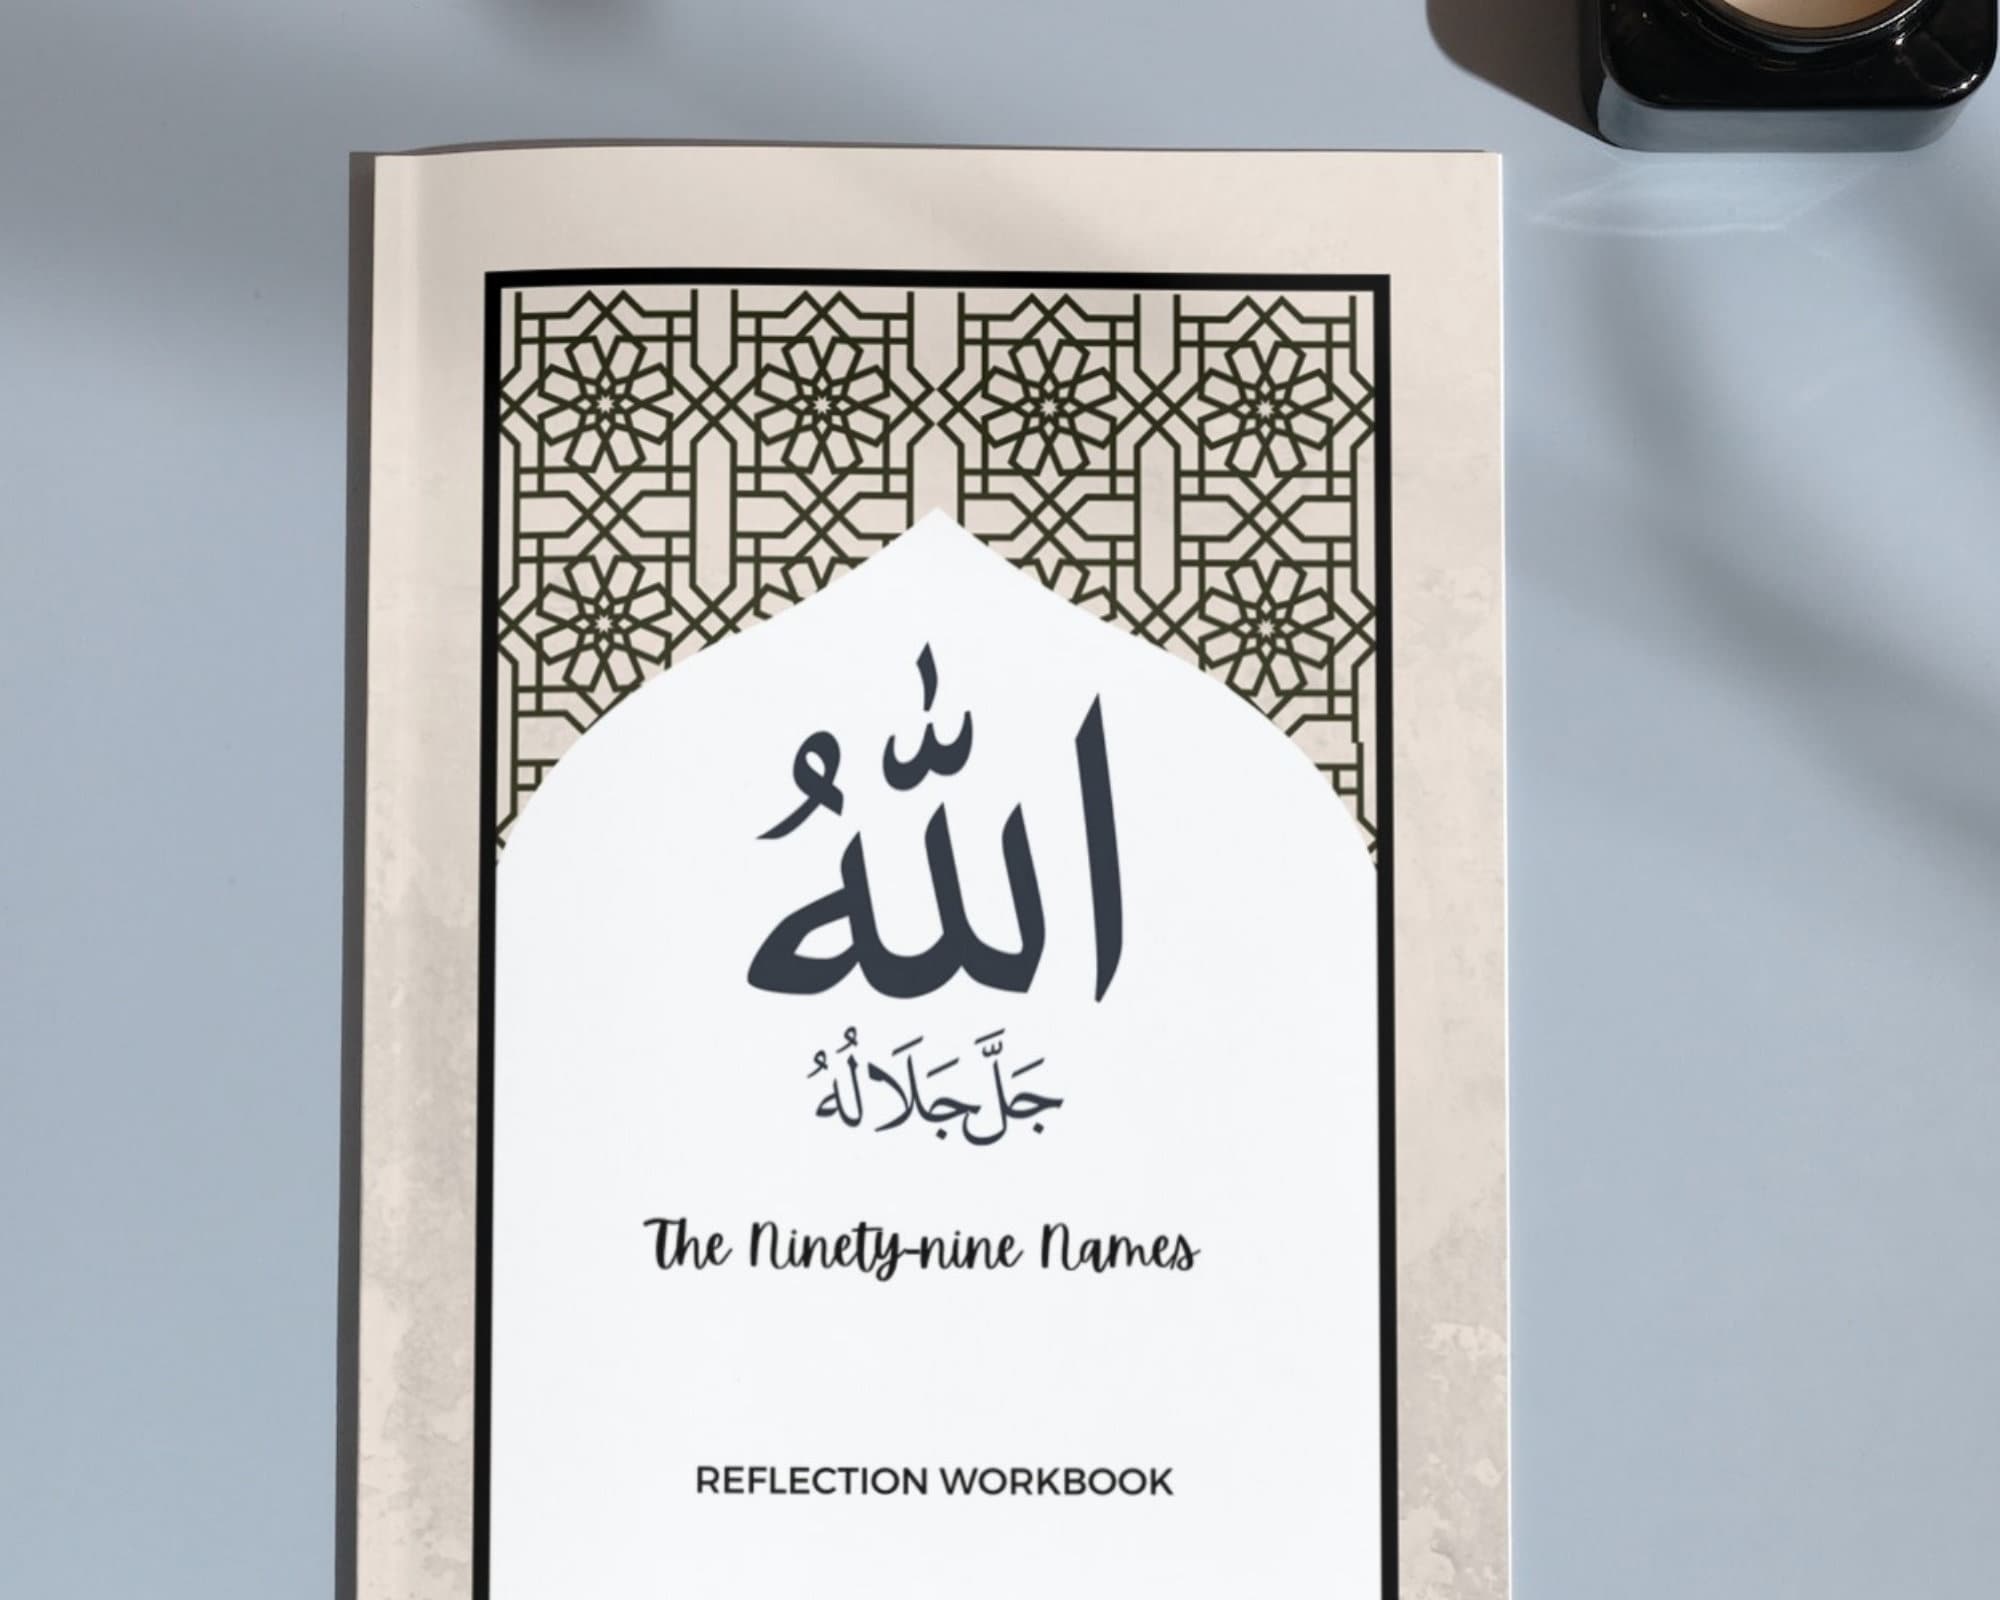 اللّٰهُ
جَلَّ جَلَالُهُ
The Ninety-nine Names
REFLECTION WORKBOOK